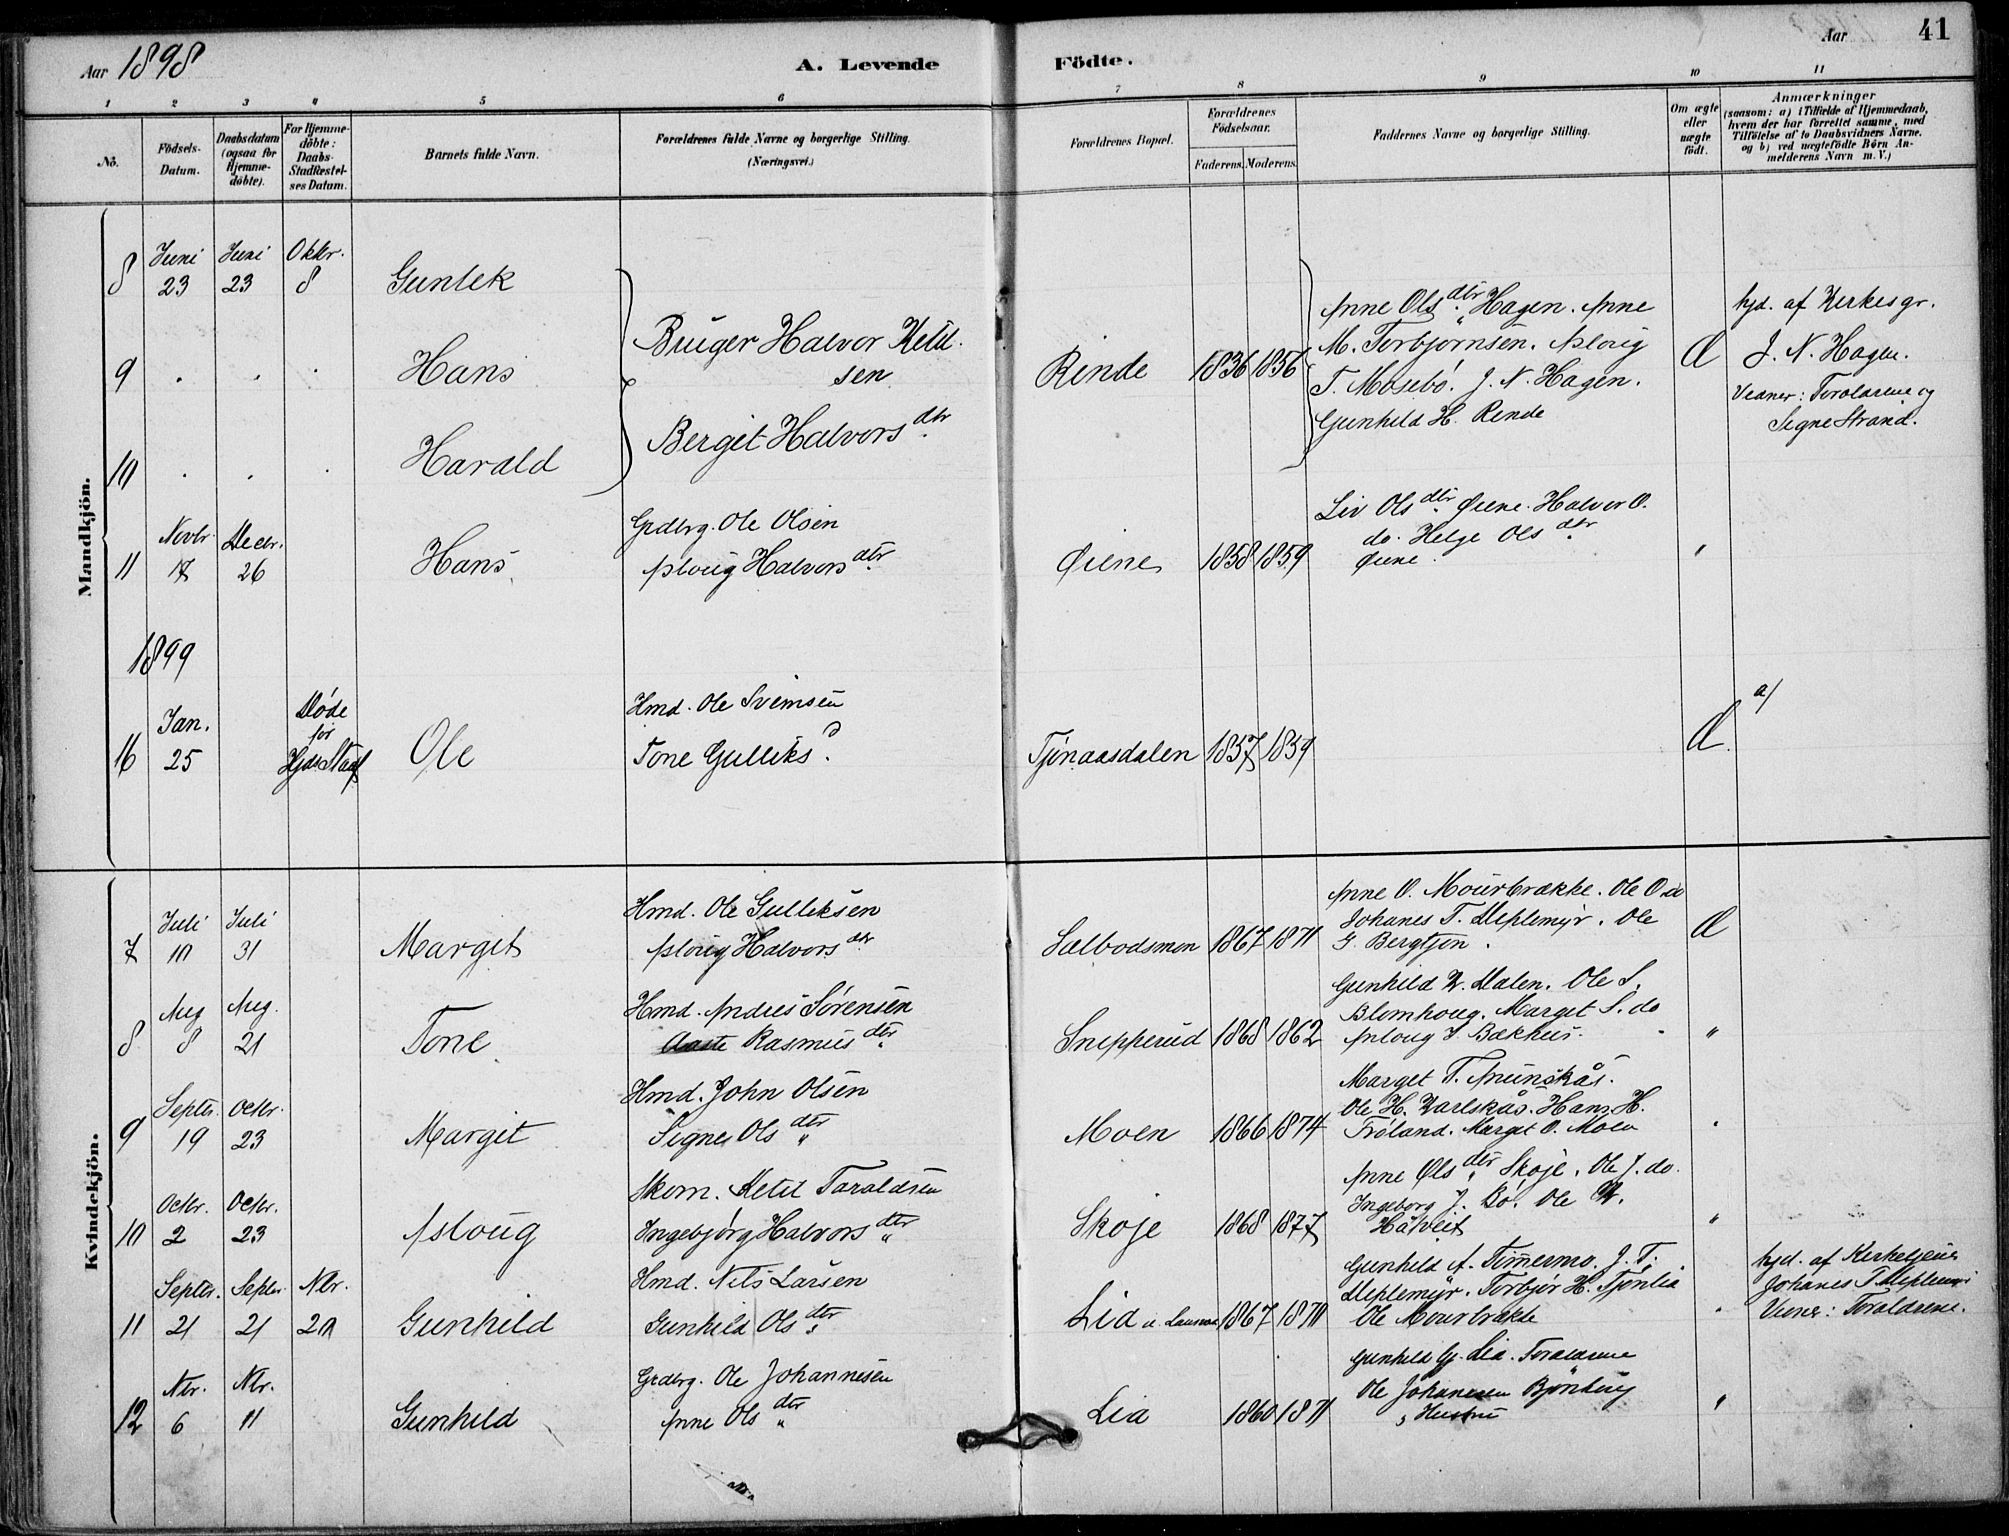 Aar 1898
A. Levende Födte.
Aar
41
1 2 3 4 5 6 7 8 9 10 11
No.
Födsels-Datum.
Daabsdatum (ogsaa for Hjemme-döbte).
For Hjemme-döbte: Daabs-Stadfæstel-ses Datum.
Barnets fulde Navn.
Forældrenes fulde Navne og borgerlige Stilling.
(Næringsvei.)
Forældrenes Bopæl.
Forældrenes Födselsaar.
Faderens. Moderens.
Faddernes Navne og borgerlige Stilling.
Om ægte eller uægte födt.
Anmærkninger
(saasom: a) i Tilfælde af Hjemmedaab, hvem der har forrettet samme, med Tilföielse af to Daabsvidners Navne. og b) ved uægtefödte Börn An-melderens Navn m. V.)
Mandkjön.
8 Juni 23 Juni 23 Oktbr. 8 Gunlek
9 . . . Hans
10 . . . Harald
Bruger Halvor Ketil-
sen
Berget Halvorsdtr
Rinde 1836 1856
Anne Olsdtr Hagen. Anne
M. Torbjørnsen. Asloug
T. Mosebø. J. N. Hagen.
Gunhild H. Rinde
Æ
hjd. af Kirkesgr.
J. N. Hagen.
Vidner: Forældrene og
Signe Strand.
11 Novbr. 17 Decbr. 26 Hans
Grdbrg. Ole Olsen
Asloug Halvorsdtr
Øiene 1858 1859
Liv Olsdtr Øiene. Halvor O.
do. Helge Olsdtr
Øiene.
"
1899
16 Jan. 25 Døde før Hjd. Stadf Ole
Hmd. Ole Svensen
Tone Gulliksd.
Tjønaasdalen 1857 1859
Æ.
a)
Kvindekjön.
7 Juli 10 Juli 31 Marget
Hmd. Ole Gulleksen
Asloug Halvorsdtr
Sælbodsmon 1867 1871
Anne O. Mourbrække. Ole O do
Johanes T. Meplemyr. Ole
G. Bergtjøn.
Æ
8 Aug 8 Aug. 21 Tone
Hmd. Andres Sørensen
Aaste Rasmusdtr
Snepperud 1868 1862
Gunhild K. Dalen. Ole S.
Blomhoug. Marget S. do
Asloug S. Bakhus.
"
9 Septbr. 19 Octbr. 23 Margit
Hmd. John Olsen
Signe Olsdtr
Moen 1866 1874
Marget T. Aunskås.
Ole H. Karlskås. Hans H.
Trøland. Marget O. Moen
"
10 Octbr. 2 Octbr. 23 Asloug
Skom. Ketil Taraldsen
Ingebjørg Halvorsdtr
Skoje 1868 1877
Anne Olsdtr Skoje. Ole J. do.
Ingeborg J. Bø. Ole K.
Håtveit
"
11 Septbr. 21 Septbr 21 Nbr. 20 Gunhild
Hmd. Nils Larsen
Gunhild Olsdtr
Lid 1867 1870
Gunhild A. Timermo. J. T.
Meplemyr. Torbjør H. Tjønlia
Ole Mourbrække
"
hjd. af Kirketjener
Johanes T Meplemyr
Vidner: Forældrene.
12 Nbr. 6 Nbr. 11 Gunhild
Grdbrg. Ole Johannesen
Anne Olsdtr
Lia 1860 1871
Gunhild G. Lia. Forældrene
Ole Johannesen
Hustru
"